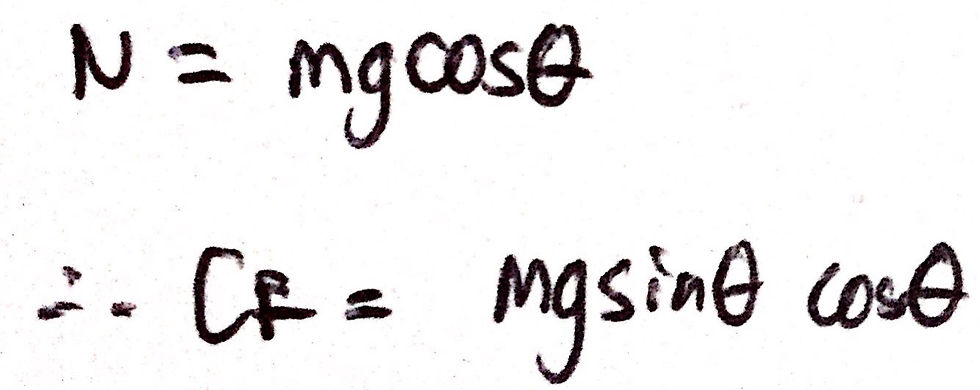 N = mgcosθ
∴ CF = mgsinθ cosθ